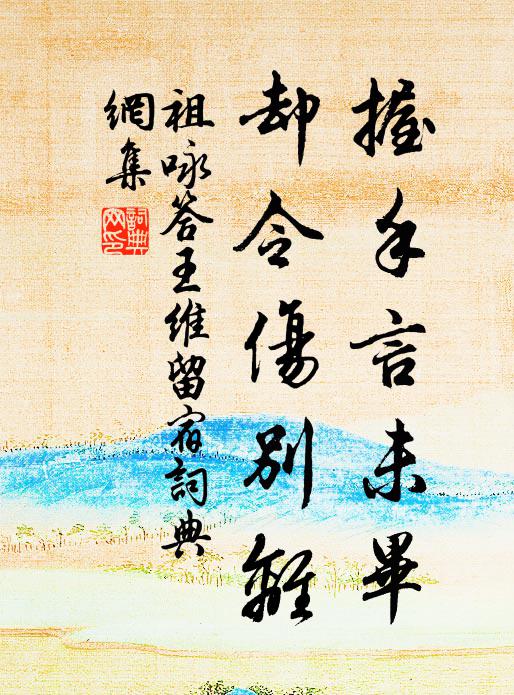 握手言未畢
却令傷別離
祖咏答王維留宿詞典
網集
詞典網印